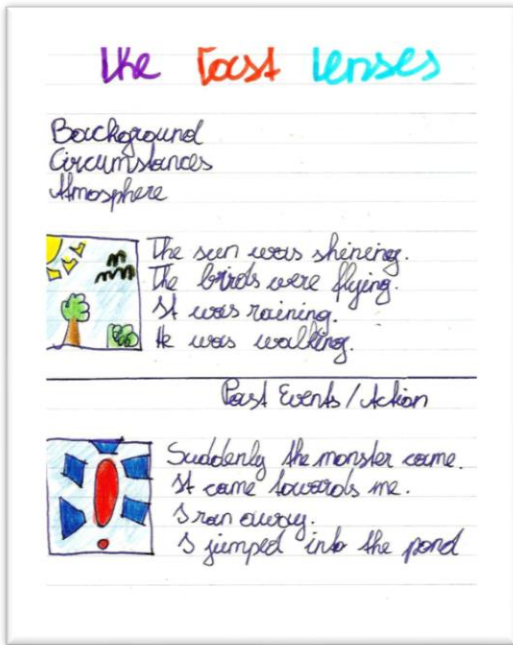 The Past Tenses
Background
Circumstances
Atmosphere
The sun was shining.
The birds were flying.
It was raining.
He was walking.
Past Events/Action
Suddenly the monster came.
It came towards me.
I ran away.
I jumped into the pond